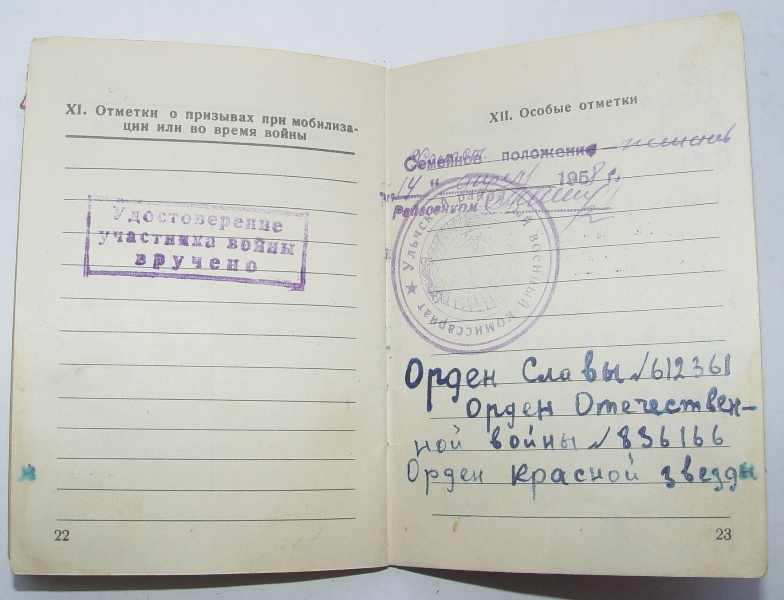 XI. Отметки о призывах при мобилиза-
ции или во время войны
Удостоверение
участника войны
вручено
22
XII. Особые отметки
Семейное положение женат
"14" апреля 1958 г.
Райвоенком
Ульчский районный военный комиссариат
Орден Славы №612361
Орден Отечествен-
ной войны №836166
Орден Красной звезды
23